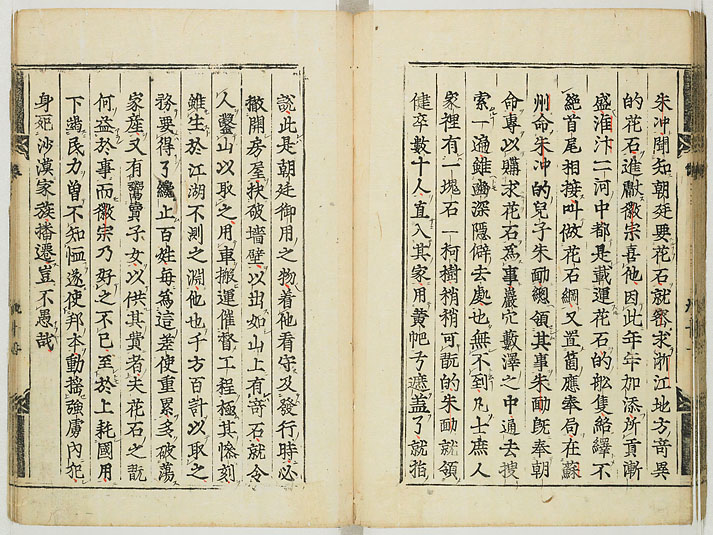 朱冲聞知朝廷要花石就密求浙江地方竒異
的花石進獻徽宗喜他因此年年加添所貢漸
盛淮汴二河中都是載運花石的舩隻絡繹不
絶首尾相接叫做花石綱又置箇應奉局在蘇
州命朱冲的兒子朱勔緫領其事朱勔旣奉朝
命專以購求花石為事巖穴藪澤之中通去搜
索一遍雖幽深隱僻去處也無不到凡士庶人
家裡有一塊石一柯樹稍稍可翫的朱勔就領
健卒數十人直入其家用黄帊兮遮盖了就指
說此是朝廷御用之物着他看守及發行時必
撤開房屋抉破墻壁以出如山上有竒石就令
人鑿山以取之用車搬運催督工程極其慘刻
雖生於江湖不測之淵他也千方百計以取之
務要得了纔止百姓每為這差使重累多破蕩
家產又有鬻賣子女以供其費者夫花石之翫
何益於事而徽宗乃好之不已至於上耗國用
下竭民力曽不知恤遂使邦本動揺強虜內犯
身死沙漠家族播遷豈不愚哉